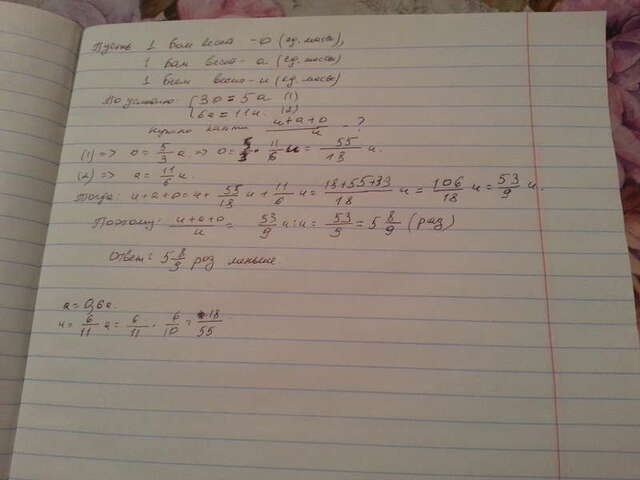 Пусть 1 бам весит - о (ед. массы),
1 вам весит - а (ед. массы)
1 весит - и (ед. массы)
По условию { 3о = 5а (1)
6а = 11и. (2)
Нужно найти (и+а+о)/и - ?
(1) => о = 5/3 а. => о = 5/3 · 11/6 и = 55/18 и.
(2) => а = 11/6 и.
Тогда: и+а+о = и + 55/18 и + 11/6 и = (18+55+33)/18 и = 106/18 и = 53/9 и.
Поэтому: (и+а+о)/и = 53/9 и : и = 53/9 = 5 8/9 (раз)
Ответ: 5 8/9 раз меньше.
а = 0,6
и = 6/11 а = 6/11 · 6/10 = 18/55